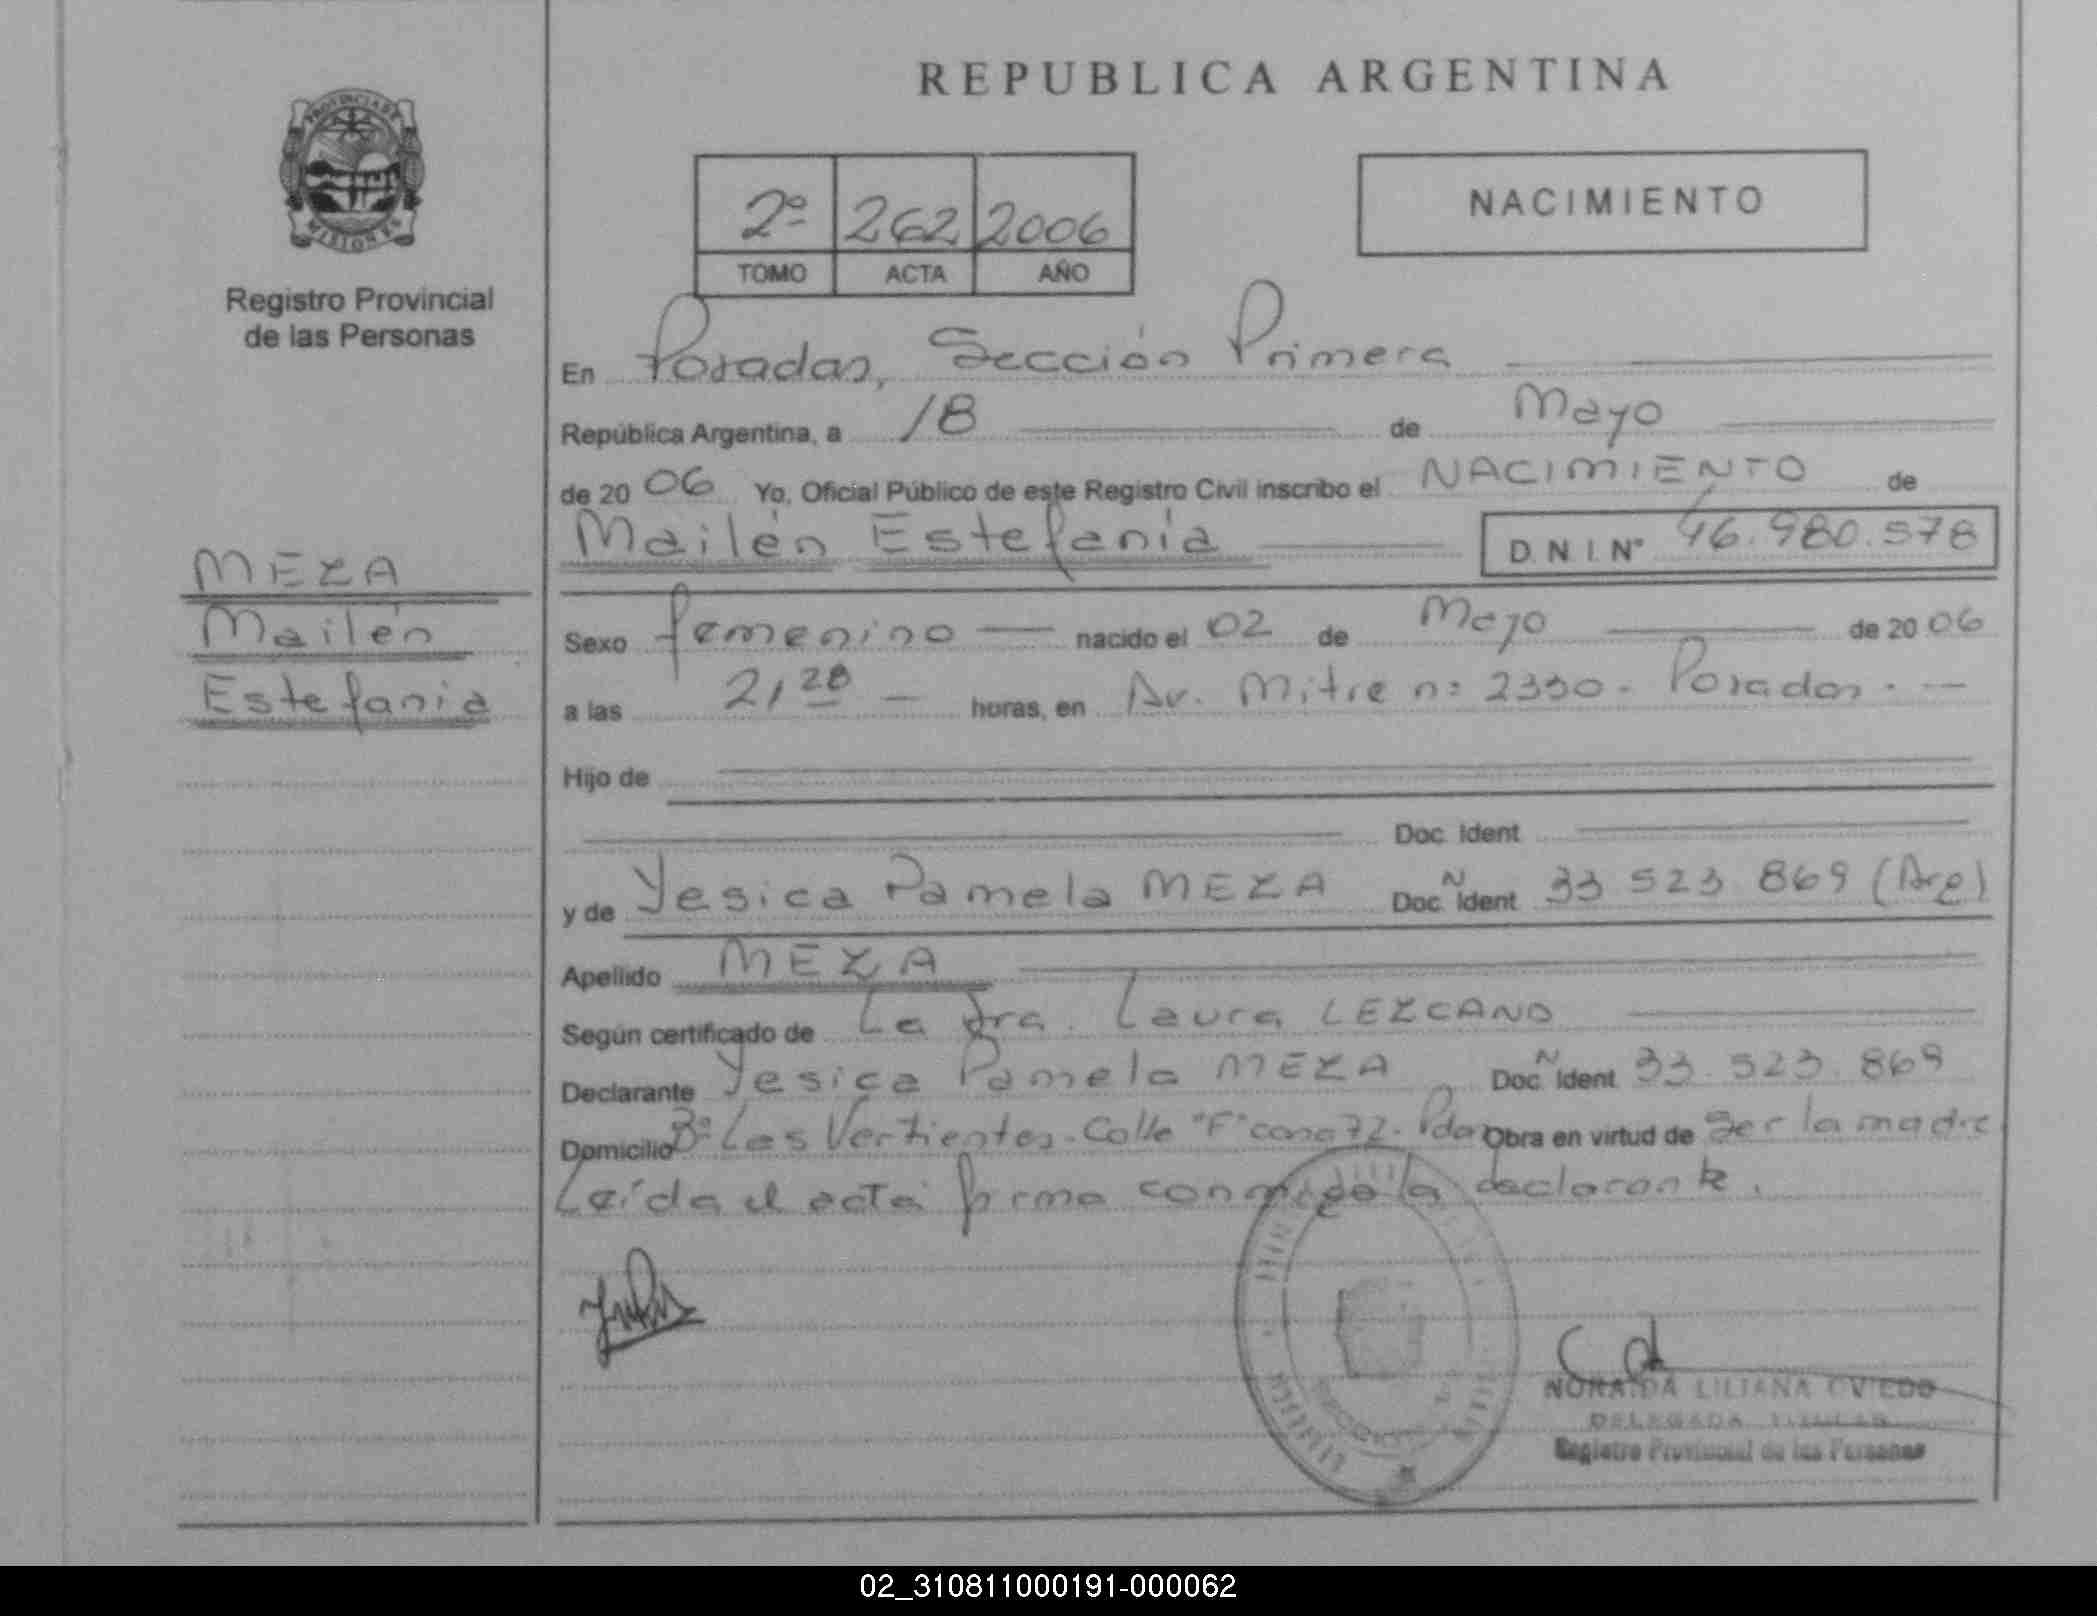 REPUBLICA ARGENTINA
PROVINCIA DE
MISIONES
Registro Provincial
de las Personas
2º 262 2006
TOMO ACTA AÑO
NACIMIENTO
En Posadas, Sección Primera
República Argentina, a 18 de Mayo
de 2006 Yo, Oficial Público de este Registro Civil inscribo el NACIMIENTO de
Mailén Estefanía D.N.I.Nº 46.980.578
MEZA
Mailén
Estefanía
Sexo femenino nacido el 02 de Mayo de 2006
a las 21,28 horas, en Av. Mitre nº 2330. Posadas.
Hijo de
Doc. Ident
y de Yesica Pamela MEZA Doc. N Ident 33 523 869 (Arg)
Apellido MEZA
Según certificado de La Dra. Laura LEZCANO
Declarante Yesica Pamela MEZA Doc. N Ident 33.523.869
Domicilio Bº Las Vertientes. Calle "F" casa 72. Pdas Obra en virtud de Ser la madre
Leída el acta firma conmigo la declarante.
NORAIDA LILIANA OVIEDO
DELEGADA TITULAR
Registro Provincial de las Personas
02_310811000191-000062